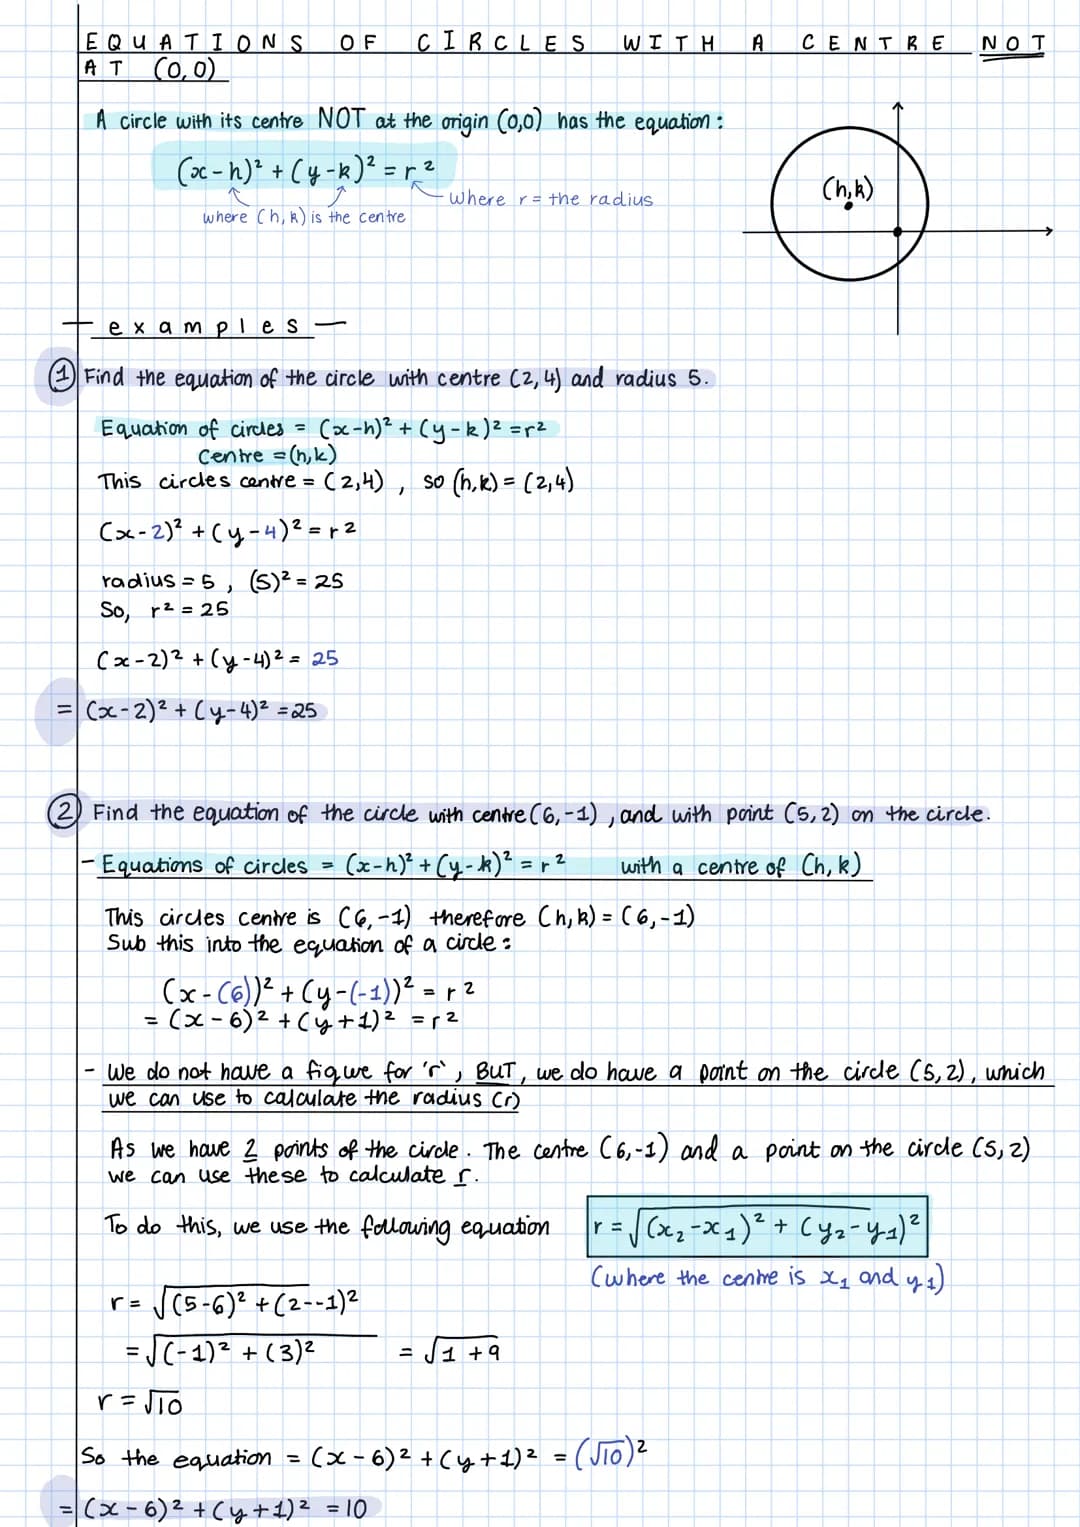 EQUATIONS OF CIRCLES WITH A CENTRE NOT
AT (0,0)
A circle with its centre NOT at the origin (0,0) has the equation:
(x-h)² + (y-k)² = r²
where r = the radius
where (h,k) is the centre
(h,k)
examples
① Find the equation of the circle with centre (2,4) and radius 5.
Equation of circles = (x-h)² + (y-k)² = r²
Centre = (h,k)
This circles centre = (2,4), so (h,k) = (2,4)
(x-2)² + (y-4)² = r²
radius = 5, (5)² = 25
So, r² = 25
(x-2)² + (y-4)² = 25
= (x-2)² + (y-4)² = 25
② Find the equation of the circle with centre (6,-1), and with point (5,2) on the circle.
- Equations of circles = (x-h)² + (y-k)² = r² with a centre of (h,k)
This circles centre is (6,-1) therefore (h,k) = (6,-1)
Sub this into the equation of a circle:
(x-(6))² + (y-(-1))² = r²
= (x-6)² + (y+1)² = r²
- We do not have a figure for 'r', BUT, we do have a point on the circle (5,2), which
we can use to calculate the radius (r)
As we have 2 points of the circle. The centre (6,-1) and a point on the circle (5,2)
we can use these to calculate r.
To do this, we use the following equation r = √(x₂-x₁)² + (y₂-y₁)²
(where the centre is x₁ and y₁)
r = √(5-6)² + (2--1)²
= √(-1)² + (3)² = √1+9
r = √10
So the equation = (x-6)² + (y+1)² = (√10)²
= (x-6)² + (y+1)² = 10